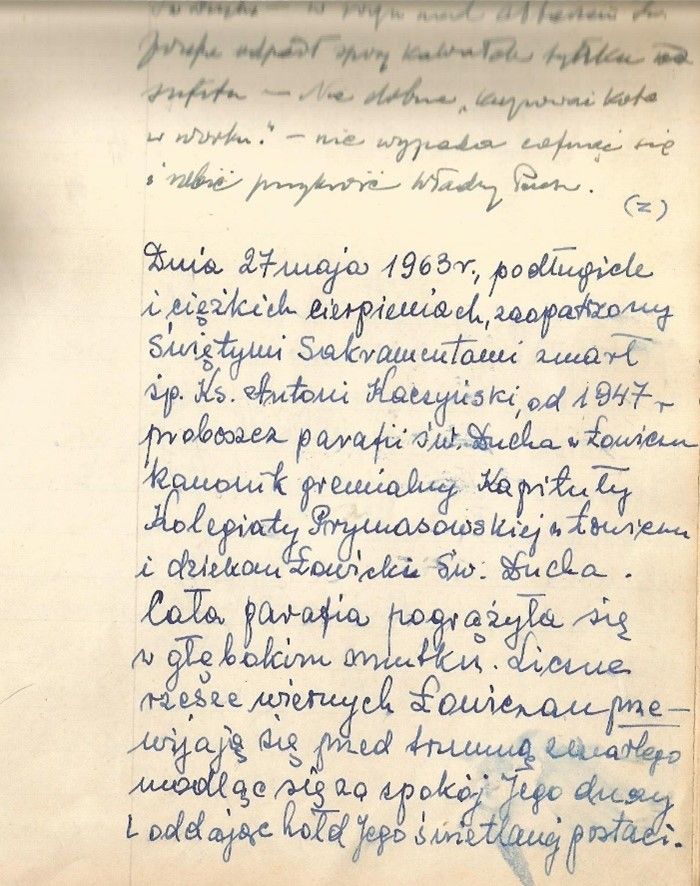 odpadł spory kawałek tynku od
sufitu — Nie dobrze „kupować kota
w worku." — nie wypada cofnąć się
i robić przykrość Władzy Duch.
(z)
Dnia 27 maja 1963 r., po długich
i ciężkich cierpieniach, zaopatrzony
Świętymi Sakramentami zmarł
śp. Ks. Antoni Kaczyński, od 1947 r
proboszcz parafii św. Ducha w Łowiczu
kanonik gremialny Kapituły
Kolegiaty Prymasowskiej w Łowiczu
i dziekan Łowicki Św. Ducha .
Cała parafia pogrążyła się
w głębokim smutku. Liczne
rzesze wiernych Łowiczan prze–
wijają się przed trumną zmarłego
modląc się za spokój Jego duszy
i oddając hołd Jego świetlanej postaci.